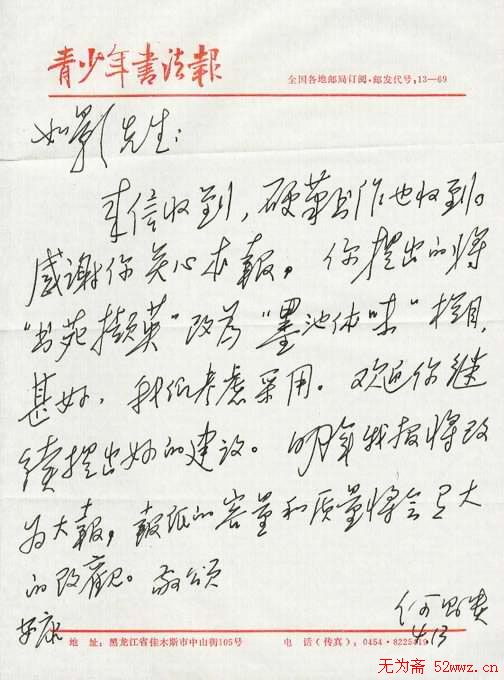 青少年书法报
全国各地邮局订阅·邮发代号,13—69
如影先生:
来信收到,硬笔书作也收到。
感谢你关心本報,你提出的将
"书苑撷英"改为"墨池体味"栏目,
甚好,我们考虑采用。欢迎你继
续提出好的建设。明年我报将改
为大報,報纸的容量和质量将会有大
的改觀。敬颂
安康
何
4.13
地 址:黑龙江省佳木斯市中山街105号 电 话(传真),0454·8225419
无为斋 52wwz.cn